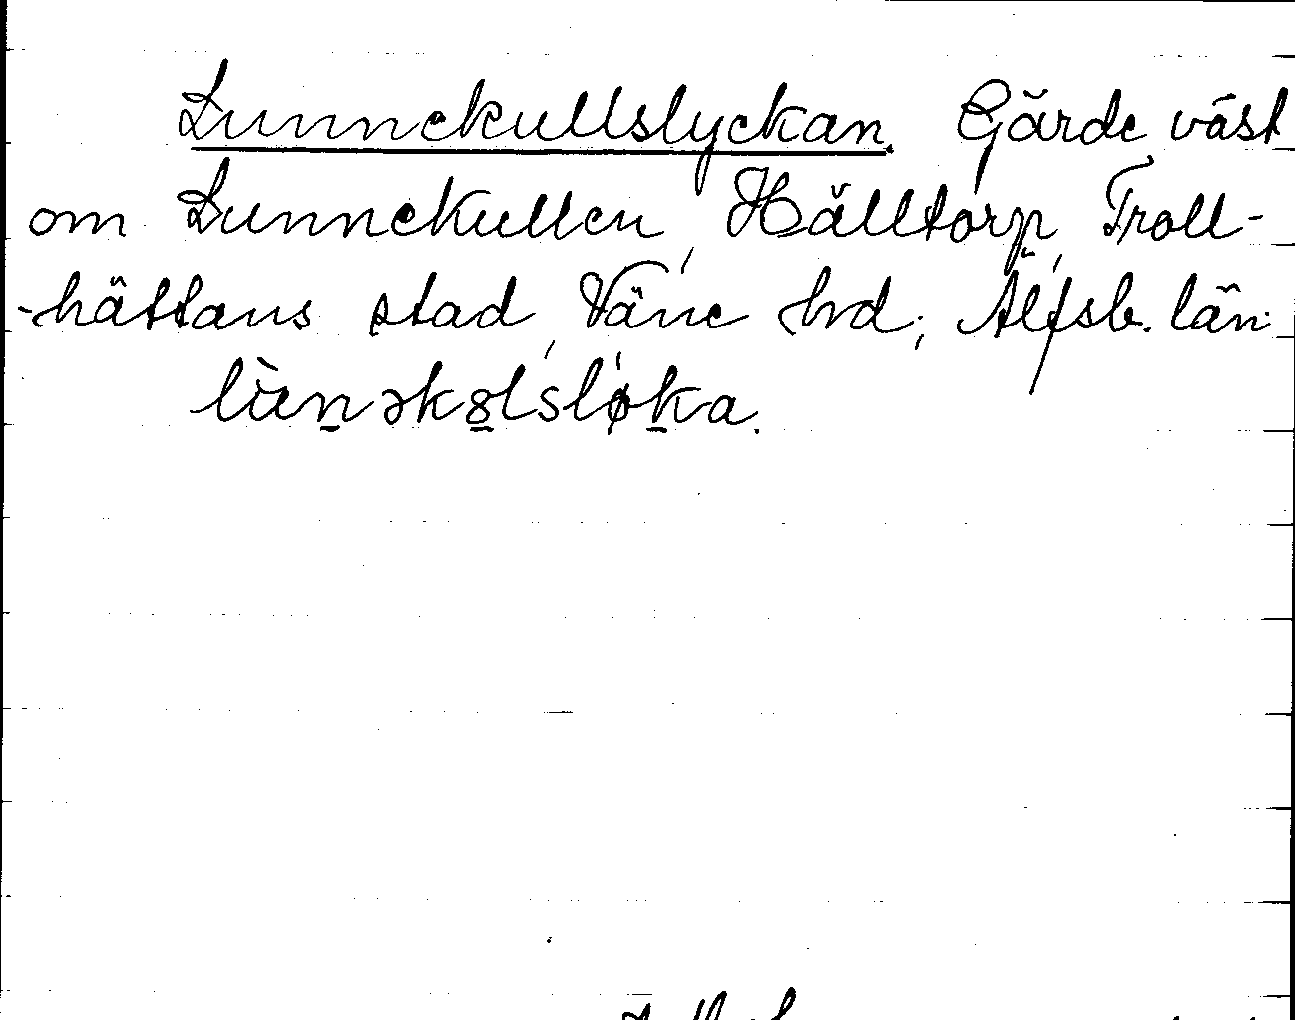 Lunnekullslyckan. Gärde väst
om Lunnekullen, Hälltorp, Troll-
-hättans stad, Väne hrd; Älfsb. län.
lùn̠ək8̠lslø̍k̠a.